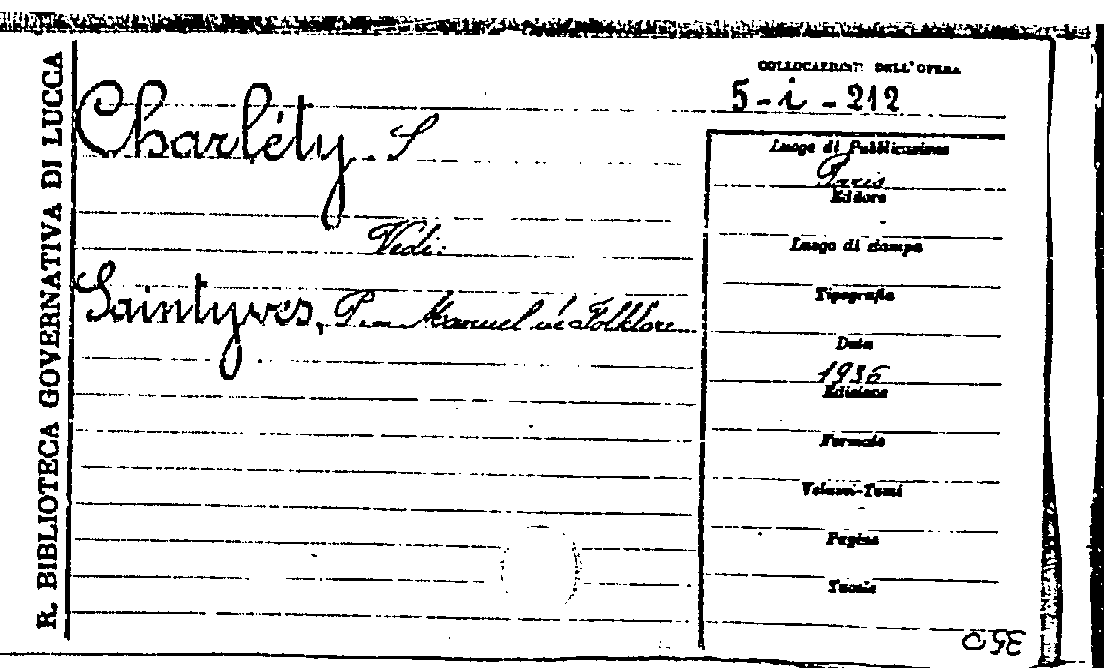 R. BIBLIOTECA GOVERNATIVA DI LUCCA
COLLOCAZIONI DELL'OPERA
5-i-212
Charléty. S
Vedi:
Saintyves, P. — Manuel de Folklore...
Luogo di Pubblicazione
Paris
Editore
Luogo di stampa
Tipografia
Data
1936
Edizione
Formato
Volumi-Tomi
Pagine
Tavole
350